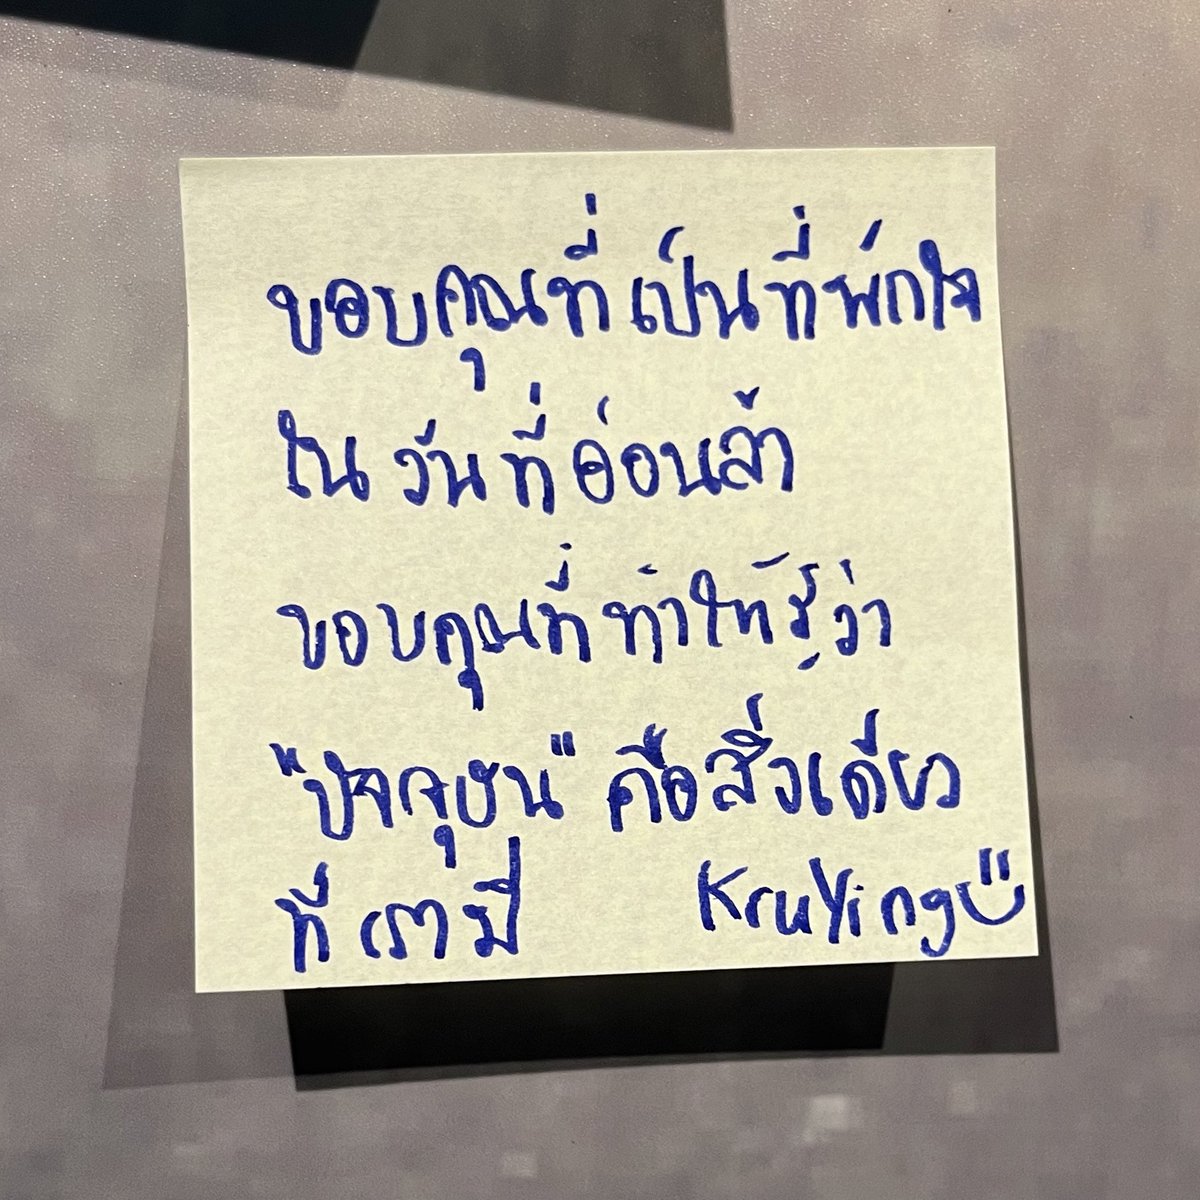 ขอบคุณที่เป็นที่พักใจ
ในวันที่อ่อนล้า
ขอบคุณที่ทำให้รู้ว่า
"ปัจจุบัน" คือสิ่งเดียว
ที่เรามี KruYing